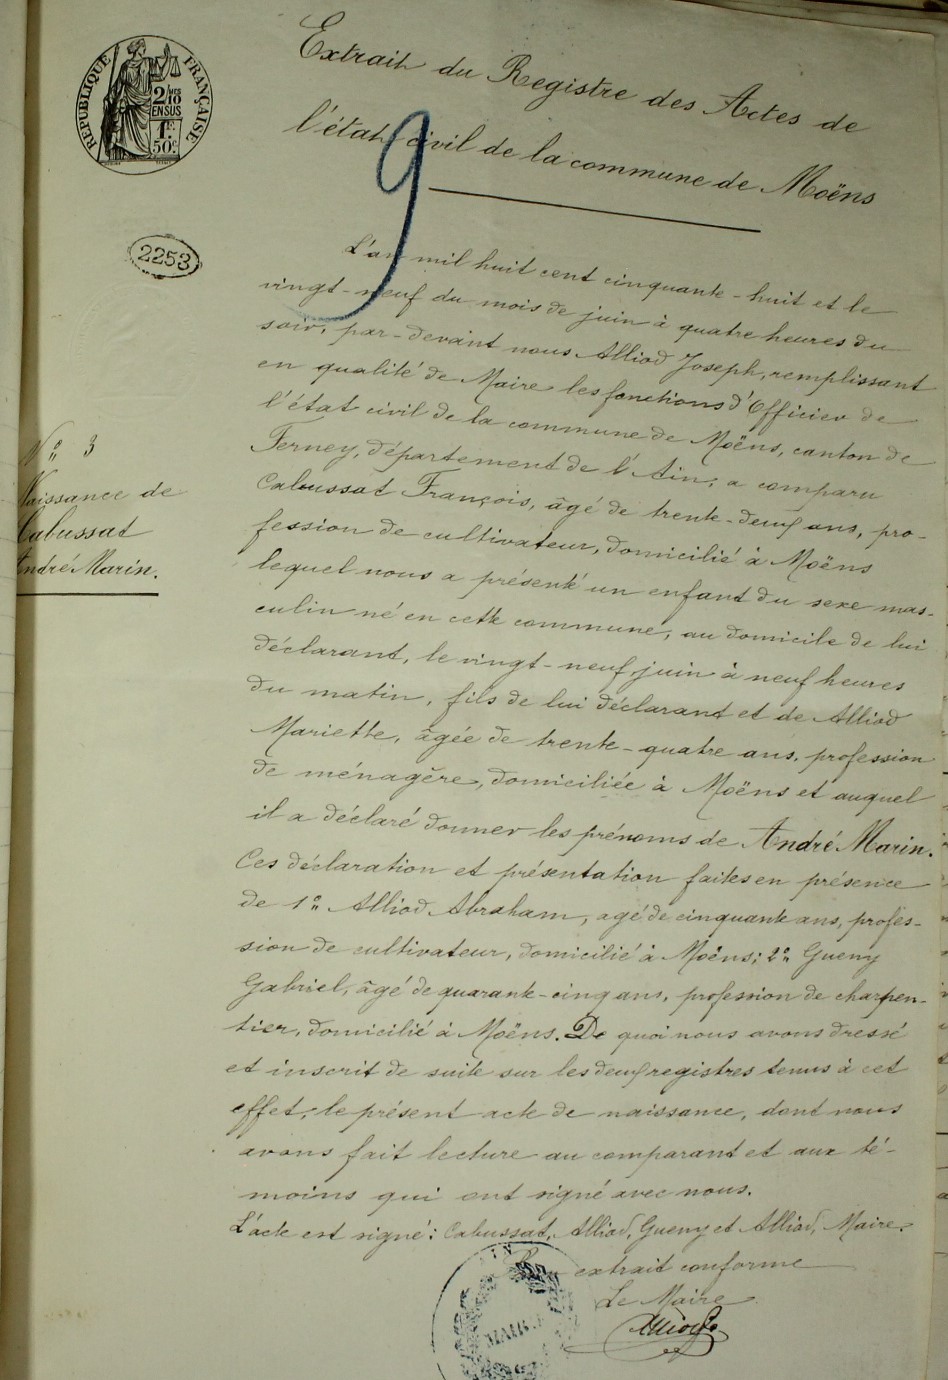 RÉPUBLIQUE FRANÇAISE
2/10 MES
EN SUS
1F.
50c.
Extrait du Registre des Actes de
l'état civil de la commune de Moëns
9
2253
L'an mil huit cent cinquante-huit et le
vingt-neuf du mois de juin à quatre heures du
soir, par-devant nous Alliod Joseph, remplissant
en qualité de Maire les fonctions d'Officier de
l'état civil de la commune de Moëns, canton de
Ferney, département de l'Ain, a comparu
Cabussat François, âgé de trente-deux ans, pro-
fession de cultivateur, domicilié à Moëns
lequel nous a présenté un enfant du sexe mas-
culin né en cette commune, au domicile de lui
déclarant, le vingt-neuf juin à neuf heures
du matin, fils de lui déclarant et de Alliod
Mariette, âgée de trente-quatre ans, profession
de ménagère, domiciliée à Moëns et auquel
il a déclaré donner les prénoms de André Marin.
Ces déclaration et présentation faites en présence
de 1° Alliod Abraham, agé de cinquante ans, profes-
sion de cultivateur, domicilié à Moëns; 2° Gueny
Gabriel, âgé de quarante-cinq ans, profession de charpen-
tier, domicilié à Moëns. De quoi nous avons dressé
et inscrit de suite sur les deux registres tenus à cet
effet, le présent acte de naissance, dont nous
avons fait lecture au comparant et aux té-
moins qui ont signé avec nous.
L'acte est signé: Cabussat, Alliod, Gueny et Alliod, Maire.
extrait conforme
Le Maire
Alliod
N° 3
Naissance de
Cabussat
André Marin.
AIN
MAIRIE